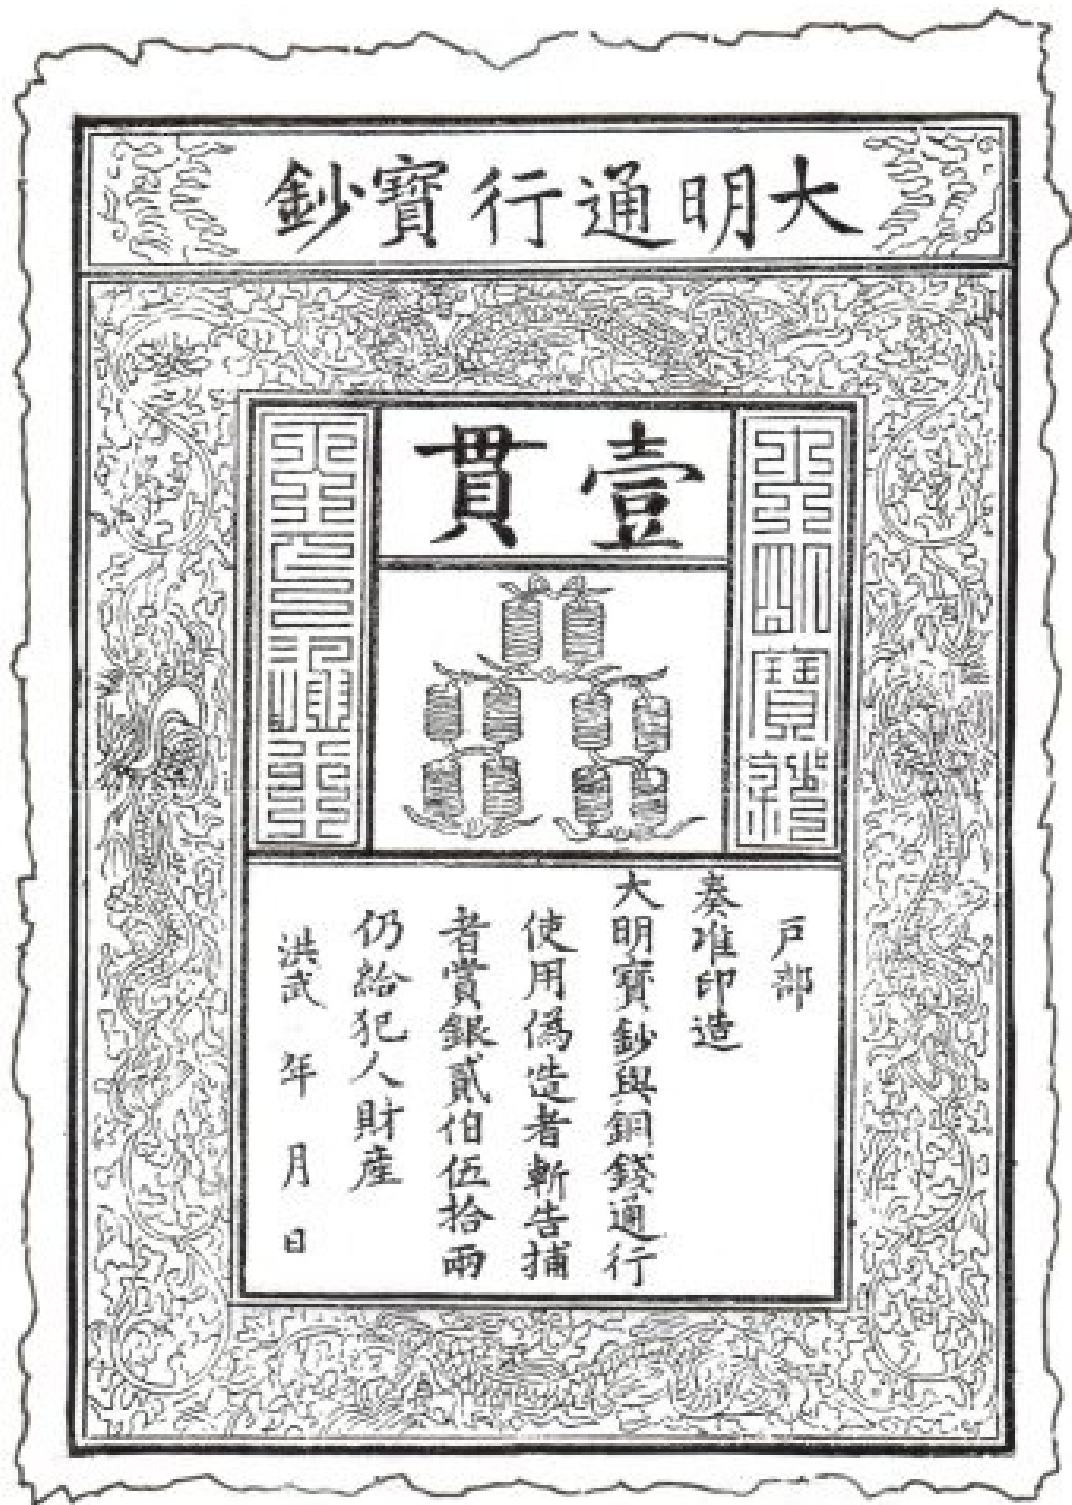 大明通行寶鈔
大明寶鈔
壹貫
天下通行
戶部
奏准印造
大明寶鈔與銅錢通行
使用僞造者斬告捕
者賞銀貳伯伍拾兩
仍給犯人財産
洪武 年 月 日